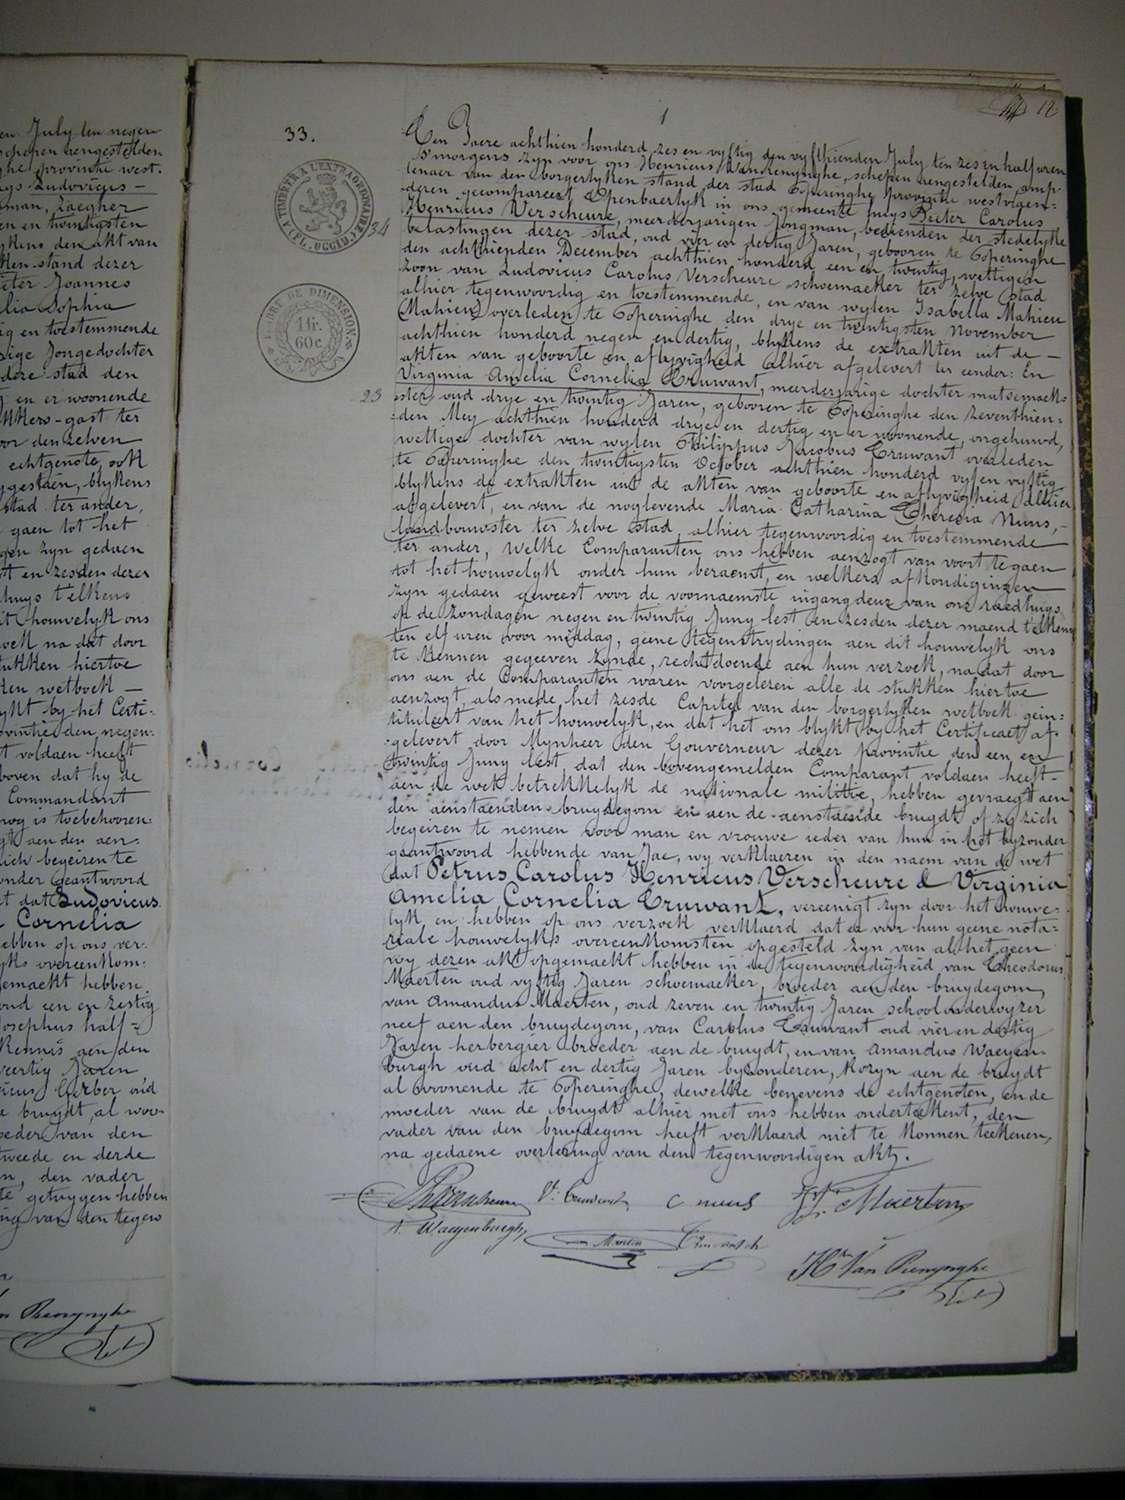 en July ten negen
schepen aengestelden
ghe provintie west-
uys Ludovicus —
man, Zaegher
en en twintigsten
ykens den akt van
ken stand dezer
eter Joannes
lia Sophia
ig en toestemmende
ige Jongedochter
deze stad den
en er woonende
kkers-gast ter
or den zelven
echtgenote, ook
gestaen, blykens
stad ter ander,
gaen tot het
gen zyn gedaen
st en zesden dezer
huys telkens
it houwelyk ons
oek na dat door
ukken hiertoe
ken wetboek —
ykt by het Certi-
ovintie den negen-
t voldaen heeft
boven dat hy de
Commandant
nog is toebehooren-
gt aen den aen-
zich begeiren te
onder Geantwoord
et dat Ludovicus
Cornelia
hebben op ons ver-
yks overeenkom-
gemaekt hebben
oud een en zestig
Josephus half-
Kennis aen den
veertig Jaren
ricus Gerber oud
e bruydt, al woo-
oeder van den
tweede en derde
n, den vader
te getuygen hebben
ing van den tegen
Van Renynghe
1
12
33.
TIMBRÉ A L'EXTRAORDINAIRE
34
TIMBRE DE DIMENSION
1 fr.
60 c.
23
Den Jaere achthien honderd zes en vyftig den vyfthienden July ten zes en half uren
's morgens zyn voor ons Henricus Van Renynghe, schepen aengestelden amp-
tenaer van den borgerlyken stand der stad Poperinghe provintie westvlaen-
deren gecompareert Openbaerlyk in ons gemeente huys Pieter Carolus
Henricus Verscheure, meerderjarigen Jongman, bedienden der stedelyke
belastingen dezer stad, oud vier en dertig Jaren, gebooren te Poperinghe
den achthienden December achthien honderd een en twintig, wettigen
zoon van Ludovicus Carolus Verscheure schoemaeker ter zelve stad
alhier tegenwoordig en toestemmende, en van wylen Isabella Mahieu
(Mahieu) overleden te Poperinghe den drye en twintigsten November
achthien honderd negen en dertig, blykens de extrakten uit de —
akten van geboorte en aflyvigheid alhier afgelevert ter eender: En
Virginia Amelia Cornelia Cruwant, meerderjarige dochter mutsemaek-
ster oud drye en twintig Jaren, gebooren te Poperinghe den zeventhien-
den Mey achthien honderd drye en dertig en er woonende, ongehuwd,
wettige dochter van wylen Philippus Jacobus Cruwant overleden
te Poperinghe den twintigsten October achthien honderd vyf en vyftig
blykens de extrakten uit de akten van geboorte en aflyvigheid alhier
afgelevert, en van de noglevende Maria Catharina Theresia Nuns,—
landbouwster ter zelve stad, alhier tegenwoordig en toestemmende
ter ander, Welke Comparanten ons hebben aenzogt van voort te gaen
tot het houwelyk onder hun beraemt, en welkers afkondigingen
zyn gedaen geweest voor de voornaemste ingang deur van ons raedhuys
op de zondagen negen en twintig Juny lest en zesden dezer maend telkens
ten elf uren voor middag, geene tegenstrydingen aen dit houwelyk ons
te kennen gegeeven zynde, rechtdoende aen hun verzoek, na dat door
ons aen de Comparanten waren voorgelezen alle de stukken hiertoe
aenzogt, als mede het zesde Capitel van den borgerlyken wetboek gein-
tituleert van het houwelyk, en dat het ons blykt by het Certificaet af-
gelevert door Mynheer den Gouverneur dezer provintie den een en
twintig Juny lest, dat den bovengemelden Comparant voldaen heeft-
aen de wet betrekkelyk de nationale militie, hebben gevraegt aen
den aenstaenden bruydegom en aen de aenstaende bruydt of zy zich
begeiren te nemen voor man en vrouwe ieder van hun in het byzonder
geantwoord hebbende van Jae, wy verklaeren in den naem van de wet
dat Petrus Carolus Henricus Verscheure & Virginia
Amelia Cornelia Cruwant, vereenigt zyn door het houwe-
lyk en hebben op ons verzoek verklaerd dat er voor hun geene nota-
riale houwelyks overeenkomsten opgesteld zyn van al het geen
wy dezen akt opgemaekt hebben in de tegenwoordigheid van Theodorus
Maerten oud vyftig Jaren schoemaeker, broeder aen den bruydegom,
van Amandus Maerten, oud zeven en twintig Jaren schoolonderwyzer
neef aen den bruydegom, van Carolus Cruwant oud vier en dertig
Jaren herbergier broeder aen de bruydt, en van Amandus Waeyen-
burgh oud acht en dertig Jaren byzonderen, Kozyn aen de bruydt
al woonende te Poperinghe, dewelke benevens de echtgenoten, en de
moeder van de bruydt alhier met ons hebben onderteekent, den
vader van den bruydegom heeft verklaerd niet te konnen teekenen,
na gedaene overlezing van den tegenwoordigen akt.
V: Cruwant
C nuns
Maerten
A. Waeyenburgh
Hri Van Renynghe